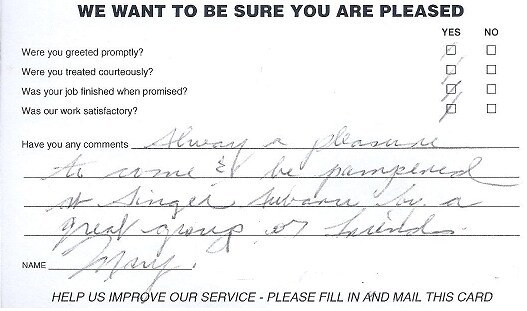 WE WANT TO BE SURE YOU ARE PLEASED
YES NO
Were you greeted promptly?
Were you treated courteously?
Was your job finished when promised?
Was our work satisfactory?
Have you any comments Always a pleasure
to come & be pampered
at Singer Subaru by a
great group of friends.
NAME Mary.
HELP US IMPROVE OUR SERVICE - PLEASE FILL IN AND MAIL THIS CARD